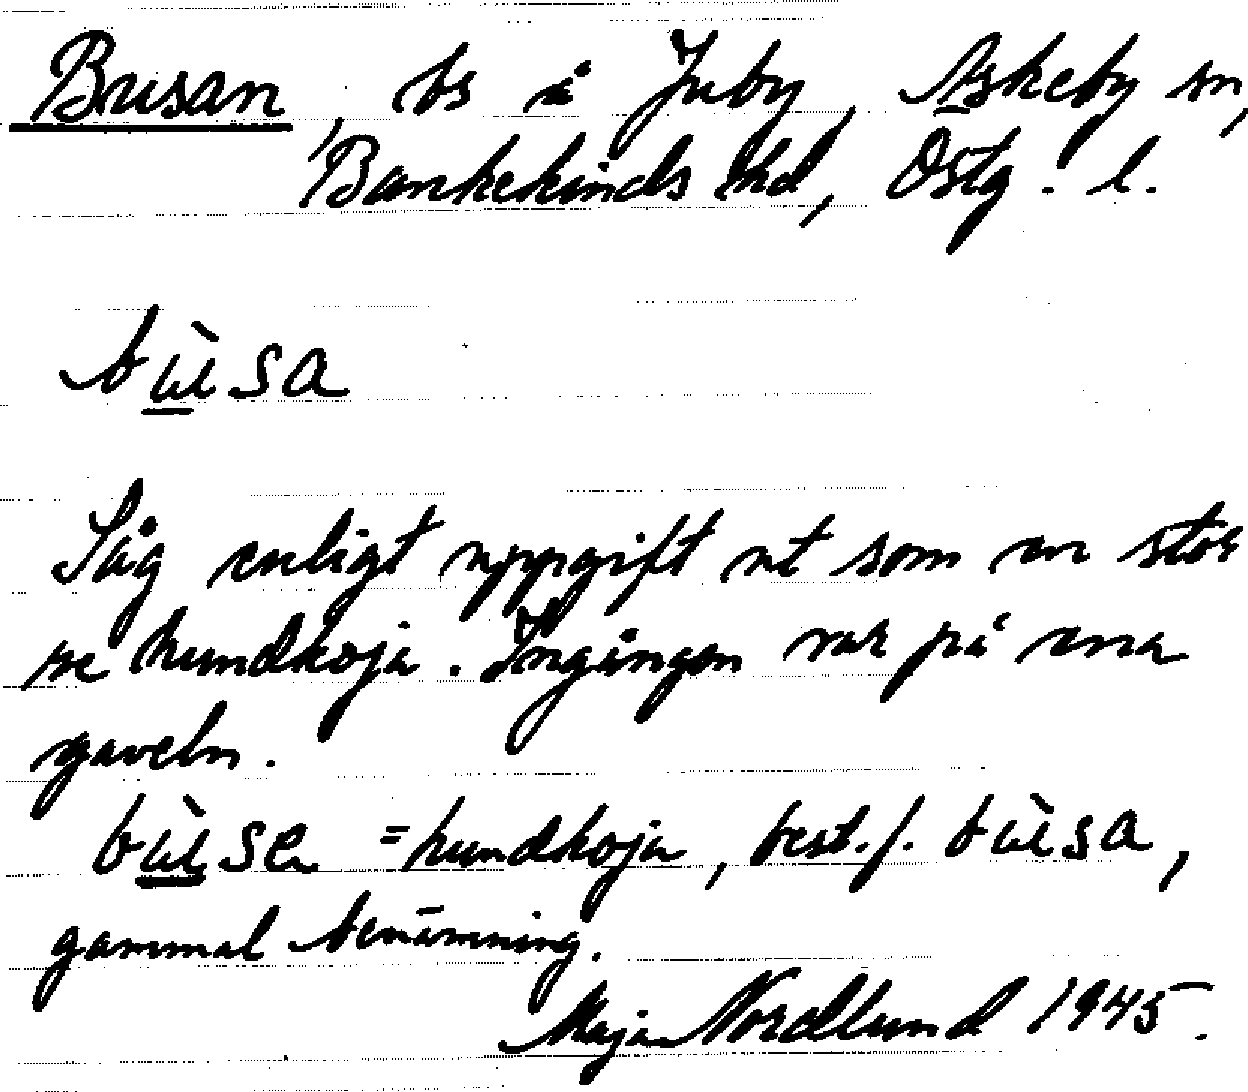 Busan, bs å Juby, Askeby sn,
Bankekinds hd, Östg. l.
bù̲sa
Såg enligt uppgift ut som en stör
re hundkoja. Ingången var på ena
gaveln.
bù̲sa = hundkoja, best. f. bùsa,
gammal benämning.
Maja Nordlund 1945.